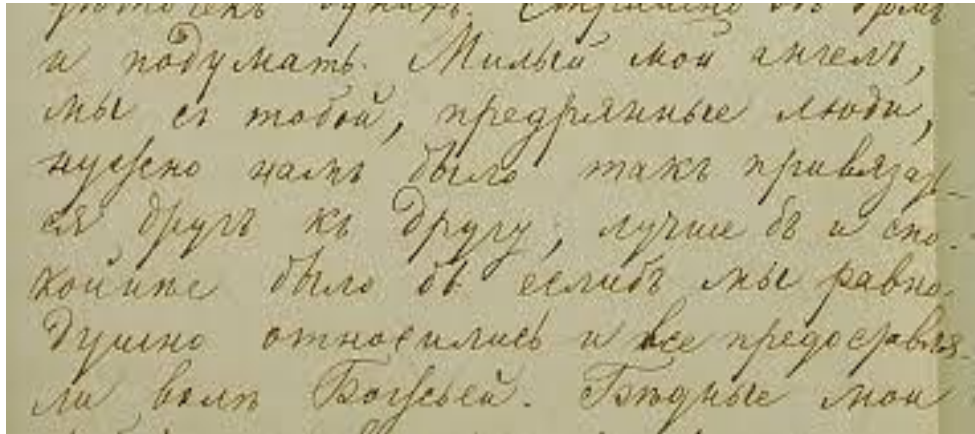 и подумать. Милый мой ангелъ,
мы съ тобой, предрянные люди,
нужно намъ было такъ привязат-
ся другъ къ другу, лучше бъ и спо-
койнѣе было бъ еслибъ мы равно-
душно относились и все предоставля-
ли волѣ Божьей. Бѣдные мои